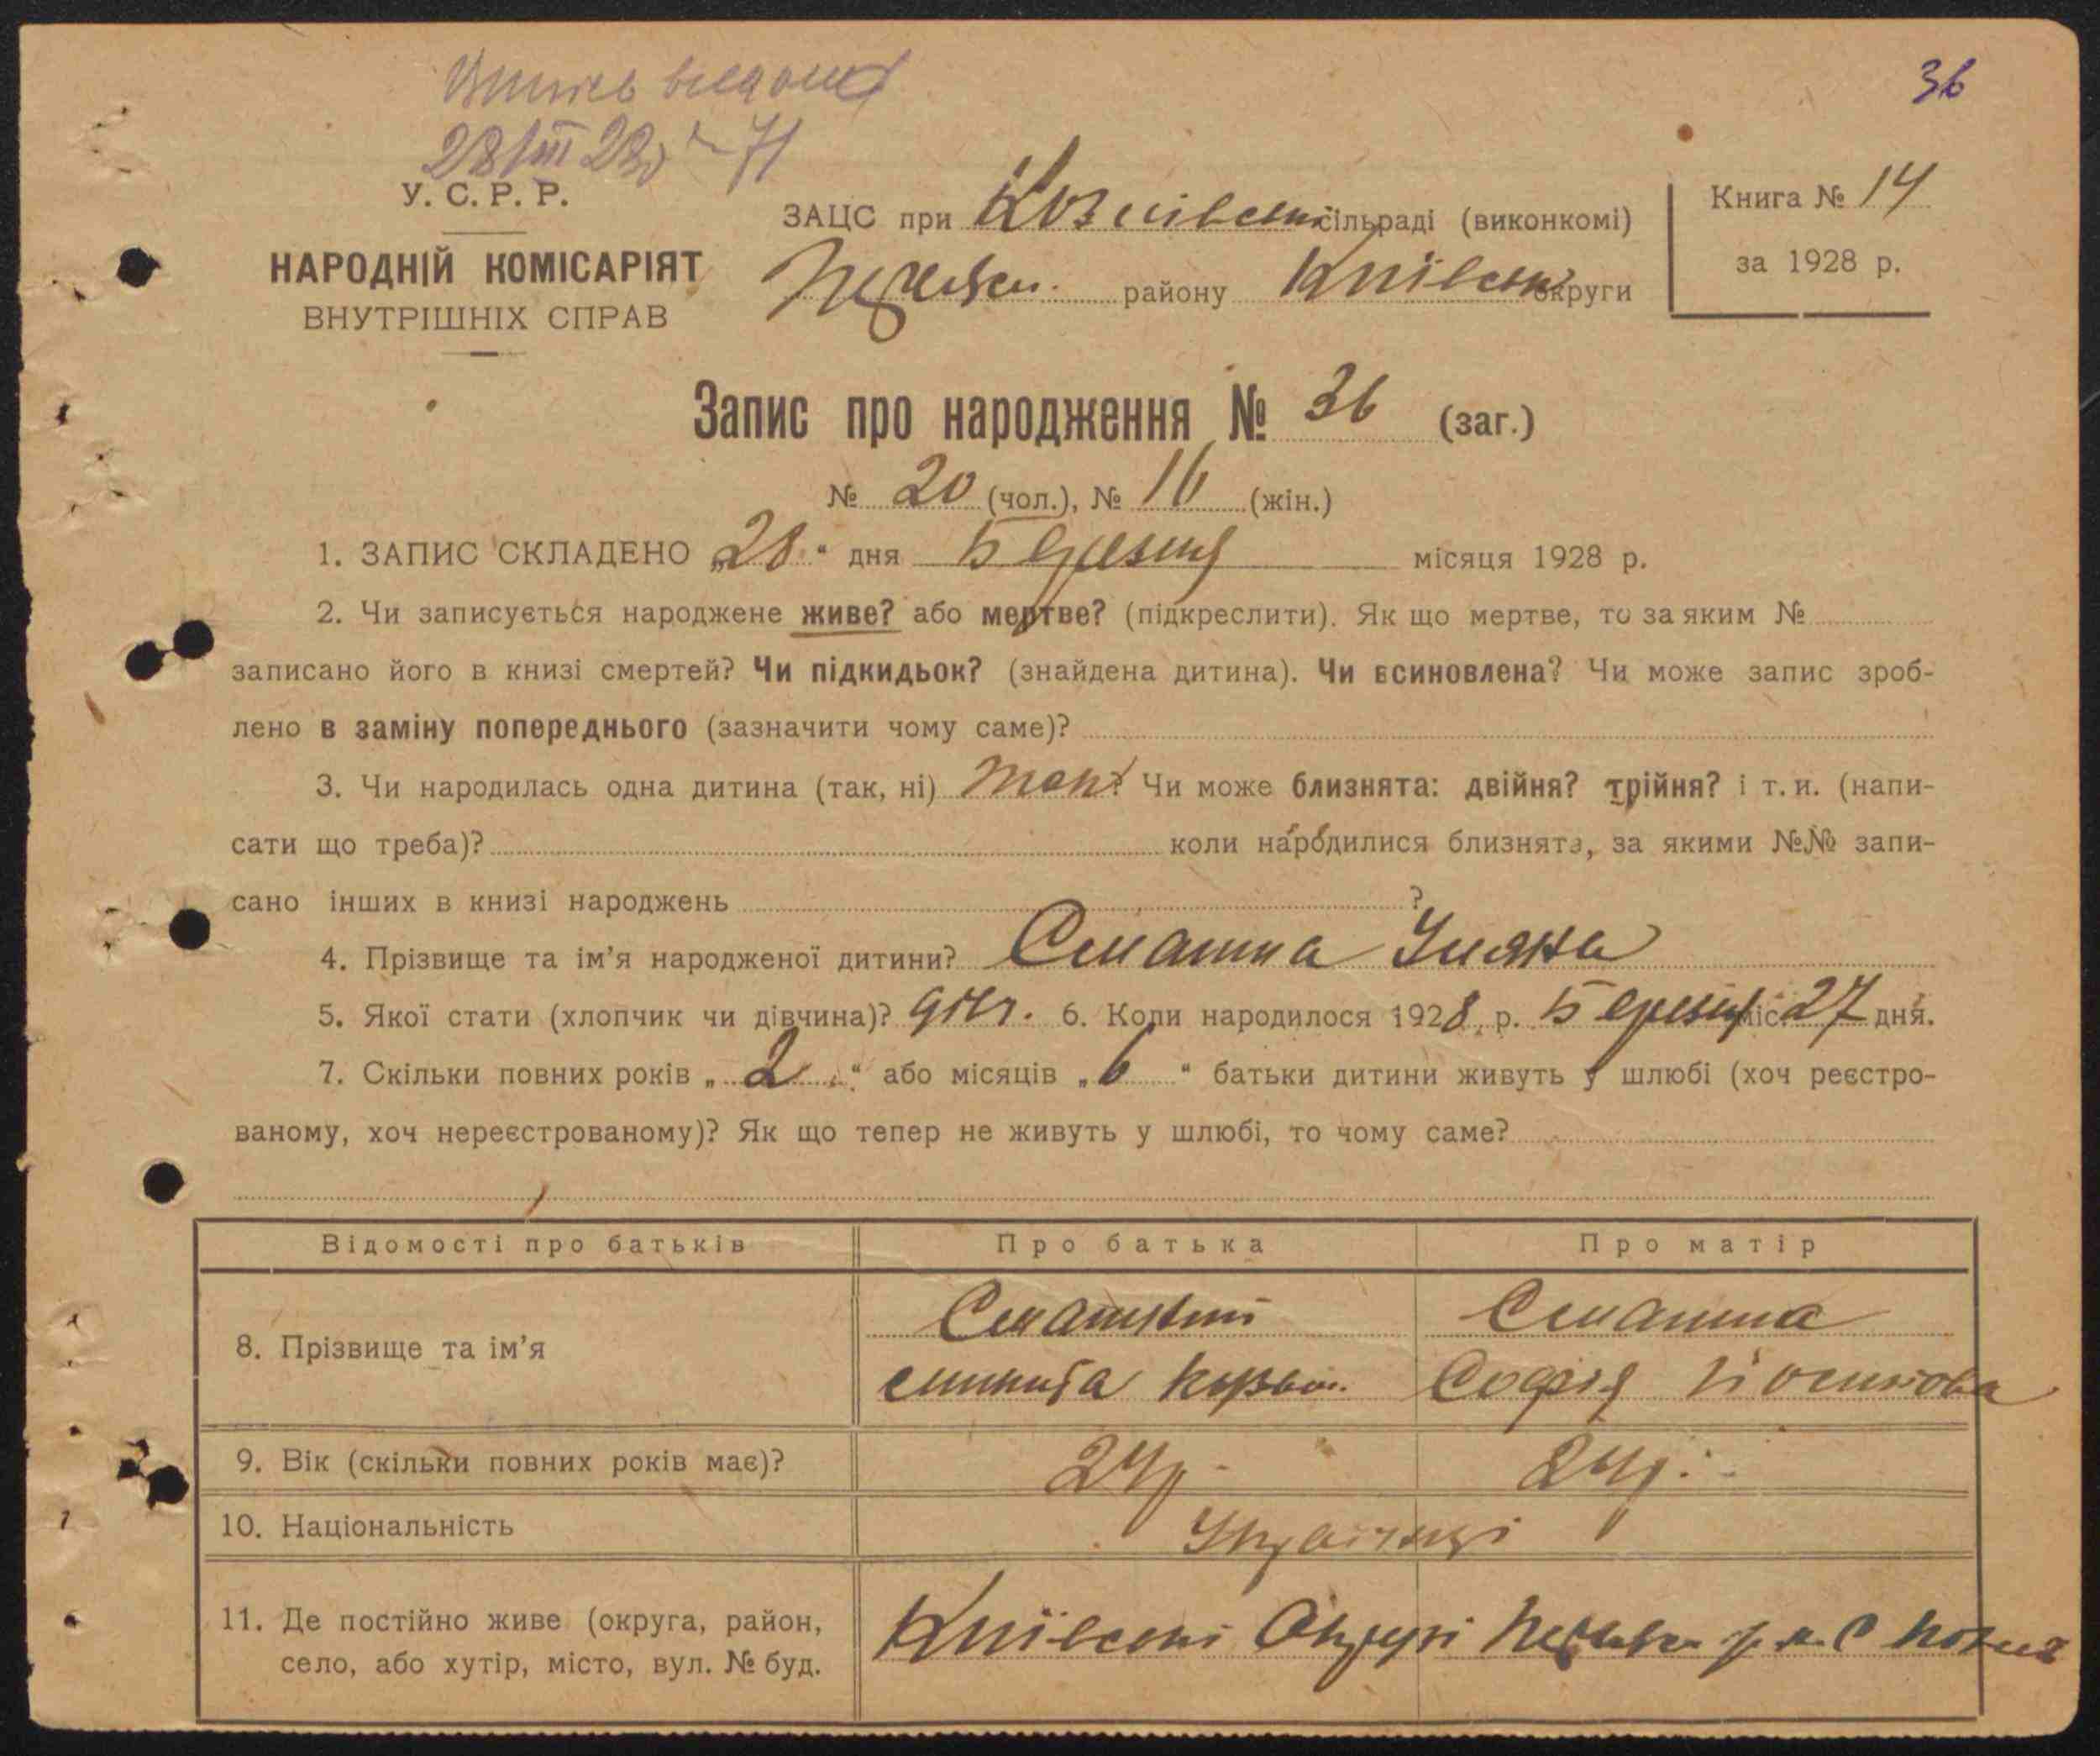 36
28/III 28р №71
У. С. Р. Р.
НАРОДНІЙ КОМІСАРІЯТ
ВНУТРІШНІХ СПРАВ
ЗАЦС при сільраді (виконкомі)
району Київськ округи
Книга № 14
за 1928 р.
Запис про народження № 36 (заг.)
№ 20 (чол.), № 16 (жін.)
1. ЗАПИС СКЛАДЕНО „28“ дня Березня місяця 1928 р.
2. Чи записується народжене живе? або мертве? (підкреслити). Як що мертве, то за яким №
записано його в книзі смертей? Чи підкидьок? (знайдена дитина). Чи всиновлена? Чи може запис зроб-
лено в заміну попереднього (зазначити чому саме)?
3. Чи народилась одна дитина (так, ні) так Чи може близнята: двійня? трійня? і т. и. (напи-
сати що треба)? коли народилися близнята, за якими №№ запи-
сано інших в книзі народжень ?
4. Прізвище та ім’я народженої дитини? Уляна
5. Якої стати (хлопчик чи дівчина)? дівч. 6. Коли народилося 1928 р. Березня міс. 27 дня.
7. Скільки повних років „2“ або місяців „6“ батьки дитини живуть у шлюбі (хоч реєстро-
ваному, хоч нереєстрованому)? Як що тепер не живуть у шлюбі, то чому саме?
Відомості про батьків Про батька Про матір
8. Прізвище та ім’я
Софія
9. Вік (скільки повних років має)? 24р. 24р.
10. Національність Українці
11. Де постійно живе (округа, район,
село, або хутір, місто, вул. № буд.
Київської Округи